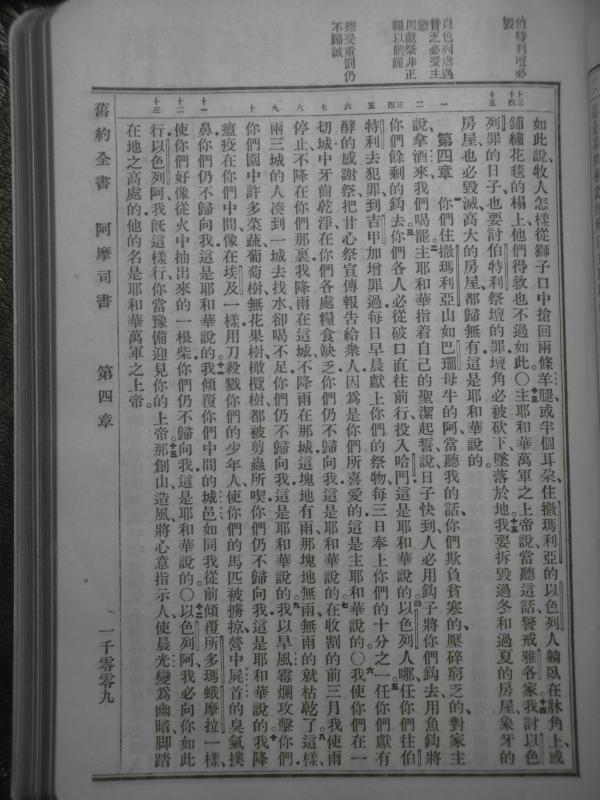 伯特利壇必
毀
以色列虐遇
貧乏必受主
因獻祭非正
報以饑饉
雖受重罰仍
不歸誠
十三
十四
十五
如此說牧人怎樣從獅子口中搶回兩條羊腿或半個耳朵住撒瑪利亞的以色列人躺臥在牀角上或
鋪繡花毯的榻上他們得救也不過如此〇主耶和華萬軍之上帝說當聽這話警戒雅各家我討以色
列罪的日子也要討伯特利祭壇的罪壇角必被砍下墜落於地我要拆毀過冬和過夏的房屋象牙的
房屋也必毀滅高大的房屋都歸無有這是耶和華說的
第四章 你們住撒瑪利亞山如巴珊母牛的阿當聽我的話你們欺負貧寒的壓碎窮乏的對家主
說拿酒來我們喝罷主耶和華指着自己的聖潔起誓說日子快到人必用鈎子將你們鈎去用魚鈎將
你們餘剩的鈎去你們各人必從破口直往前行投入哈門這是耶和華說的以色列人哪任你們往伯
特利去犯罪到吉甲加增罪過每日早晨獻上你們的祭物每三日奉上你們的十分之一任你們獻有
酵的感謝祭把甘心祭宣傳報告給衆人因爲是你們所喜愛的這是主耶和華說的〇我使你們在一
切城中牙齒乾淨在你們各處糧食缺乏你們仍不歸向我這是耶和華說的在收割的前三月我使雨
停止不降在你們那裏我降雨在這城不降雨在那城這塊地有雨那塊地無雨無雨的就枯乾了這樣
兩三城的人湊到一城去找水卻喝不足你們仍不歸向我這是耶和華說的我以旱風霉爛攻擊你們
你們園中許多菜蔬葡萄樹無花果樹橄欖樹都被剪蟲所喫你們仍不歸向我這是耶和華說的我降
瘟疫在你們中間像在埃及一樣用刀殺戮你們的少年人使你們的馬匹被擄掠營中屍首的臭氣撲
鼻你們仍不歸向我這是耶和華說的我傾覆你們中間的城邑如同我從前傾覆所多瑪蛾摩拉一樣
使你們好像從火中抽出來的一根柴你們仍不歸向我這是耶和華說的〇以色列阿我必向你如此
行以色列阿我旣這樣行你當豫備迎見你的上帝那創山造風將心意指示人使晨光變爲幽暗脚踏
在地之高處的他的名是耶和華萬軍之上帝
舊約全書 阿摩司書 第四章 一千零零九